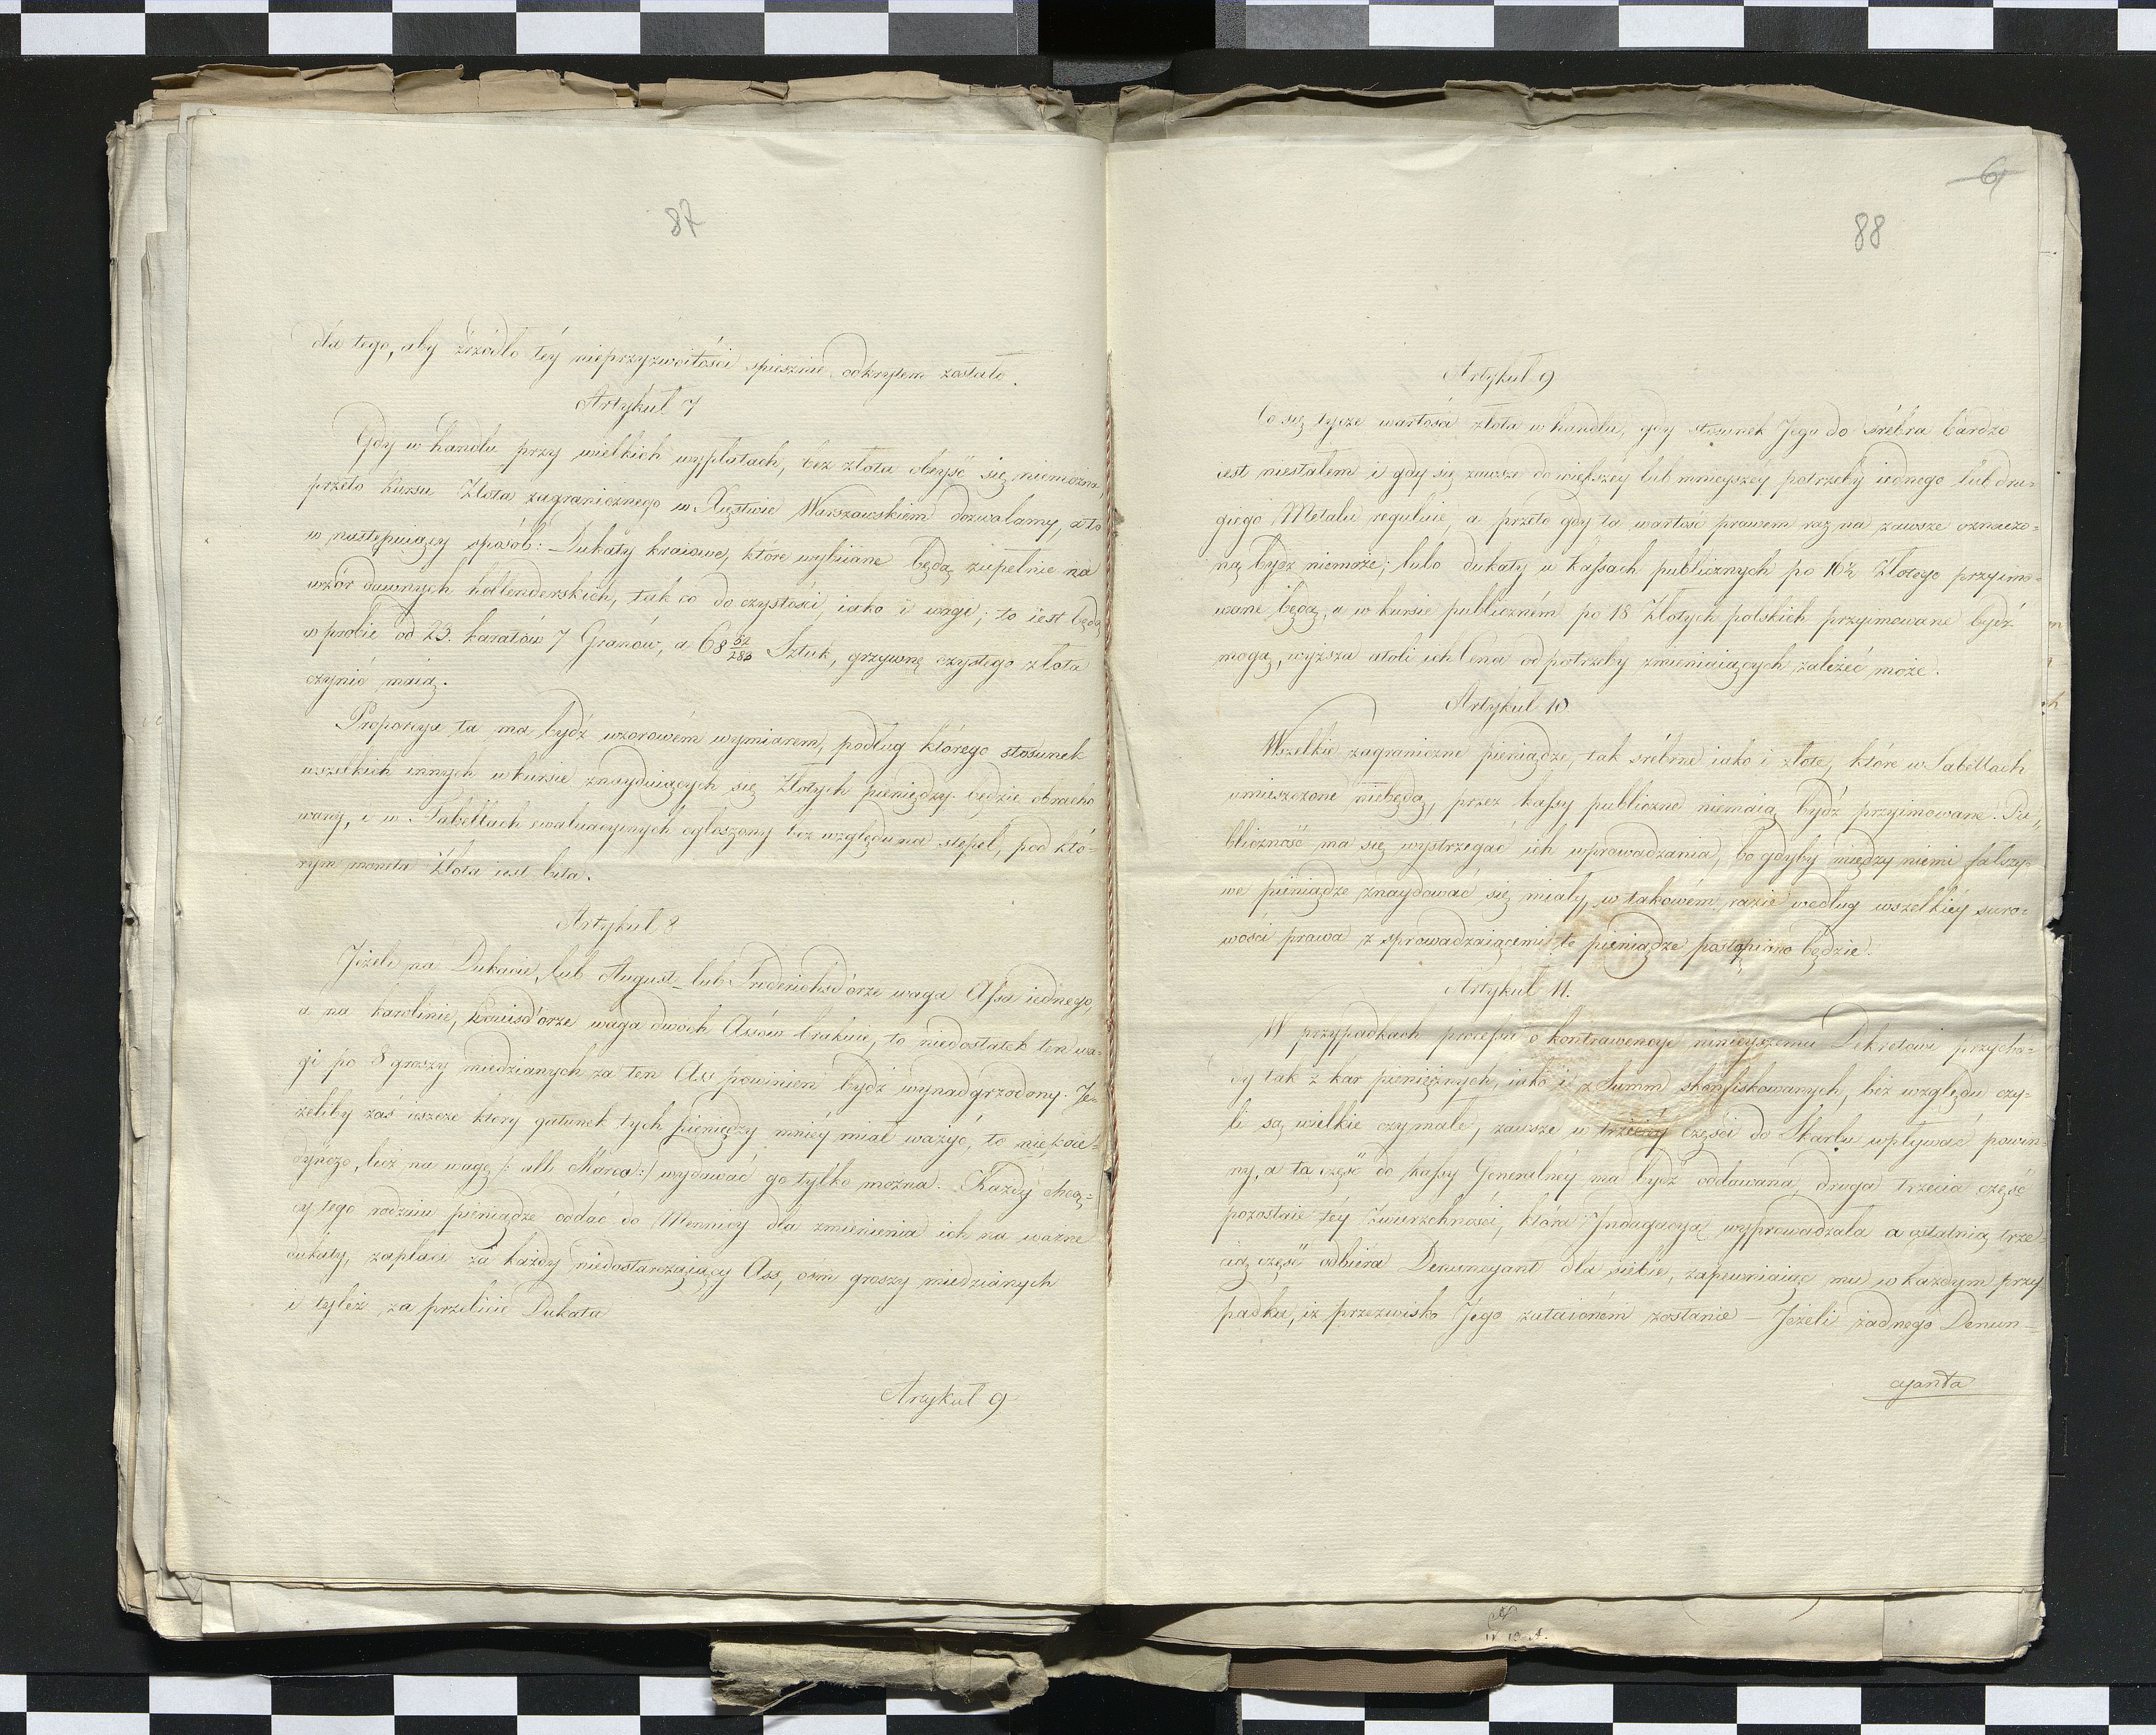 87
dla tego, aby źrzódło téy nieprzyzwoitości spiesznie odkrytem zostało.
Artykuł 7
Gdy w handlu przy wielkich wypłatach, bez złota obeyść się niemożna,
przeto kursu Złota zagranicznego w Xięstwie Warszawskiem dozwalamy, a to
w następuiący sposób: Dukaty kraiowe, które wybiiane będą zupełnie na
wzór dawnych hollenderskich, tak co do czystości, iako i wagi; to iest będą
w probie od 23. karatów 7 Granów, a 68 Sztuk, grzywnę czystego złota
czynić maią.
Proporcya ta ma bydź wzorowém wymiarem, podług którego stosunek
wszelkich innych w kursie znayduiących się Złotych pieniędzy będzie obracho
wany, i w Tabellach ewaluacyinych ogłoszony bez względu na stępel, pod któ-
rym moneta Złota iest bita.
Artykuł 8
Jeżeli na Dukacie, lub August_ lub Frederichsd'orze waga Assa iednego,
a na karolinie, Louisd'orze waga dwóch Assów brakuie, to niedostatek ten wa-
gi po 8 groszy miedzianych za ten Ass powinien bydź wynadgrzodzony. Je-
żeliby zaś ieszcze który gatunek tych pieniędzy mniéy miał ważyć, to nie poie-
dynczo, lecz na wagę /: all Marco :/ wydawać go tylko można. Każdy chcą=
cy tego rodzaiu pieniądze oddać do Mennicy dla zmienienia ich na ważne
dukaty, zapłaci za każdy niedostarczaiący Ass, osm groszy miedzianych
i tyleż za przelicie Dukata
Arzykuł 9
6
88
Artykuł 9
Co się tycze wartości złota w handlu, gdy stosunek Jego do śrébra bardzo
iest niestałem i gdy się zawsze do większéy lub mnieyszéy potrzeby iednego lub dru-
giego Metalu reguluie, a przeto gdy ta wartość prawem raz na zawsze oznaczo=
ną bydz niemoże; lubo dukaty w kassach publicznych po 16½ Złotego przyimo=
wane będą, a w kursie publiczném po 18 Złotych polskich przyimowane bydź
mogą, wyższa atoli ich Cena od potrzeby zmieniaiących zależeć może.
Artykuł 10
Wszelkie zagraniczne pieniądze, tak srébrne iako i złote, które w Tabellach
umieszczone niebędą, przez kassy publiczne niemaią bydź przyimowane. Pu,,
bliczność ma się wystrzegać ich wprowadzania, bo gdyby między niemi fałszy-
we pieniądze znaydować się miały, w takowém razie według wszelkiéy suro=
wości prawa z sprowadzaiącemi te pieniądze postąpiono będzie.
Artykuł 11.
W przypadkach processu o kontrawencye ninieyszemu Dekretowi przycho=
dy tak z kar pieniężnych, iako i z Summ skonfiskowanych, bez względu czy-
li są wielkie czy małe, zawsze w trzeciéy części do Skarbu wpływać powin-
ny, a ta część do kassy Generalnéy ma bydź oddawana, druga trzecia część
pozostaie téy Zwierzchności, która Indagacyą wyprowadzała a ostatnią trze-
cią część odbiera Denuncyant dla siebie, zapewniaiąc mu w każdym przy
padku, iż przezwisko Jego zataioném zostanie – Jeżeli żadnego Denun-
cyanta